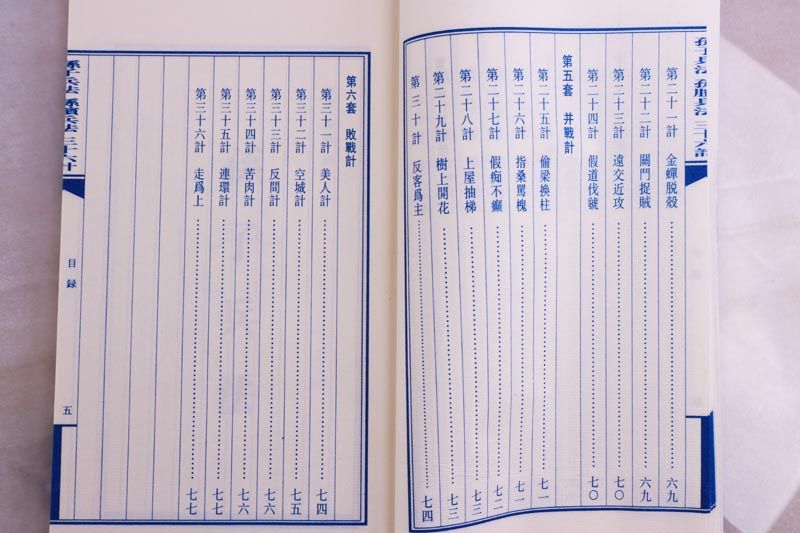 孫子兵法 孫臏兵法 三十六計
第二十一計 金蟬脱殼 六九
第二十二計 關門捉賊 六九
第二十三計 遠交近攻 七〇
第二十四計 假道伐虢 七〇
第五套 并戰計
第二十五計 偷梁换柱 七一
第二十六計 指桑駡槐 七一
第二十七計 假痴不癲 七二
第二十八計 上屋抽梯 七三
第二十九計 樹上開花 七三
第三十計 反客爲主 七四
第六套 敗戰計
第三十一計 美人計 七四
第三十二計 空城計 七五
第三十三計 反間計 七六
第三十四計 苦肉計 七六
第三十五計 連環計 七七
第三十六計 走爲上 七七
孫子兵法 孫臏兵法 三十六計
目録
五